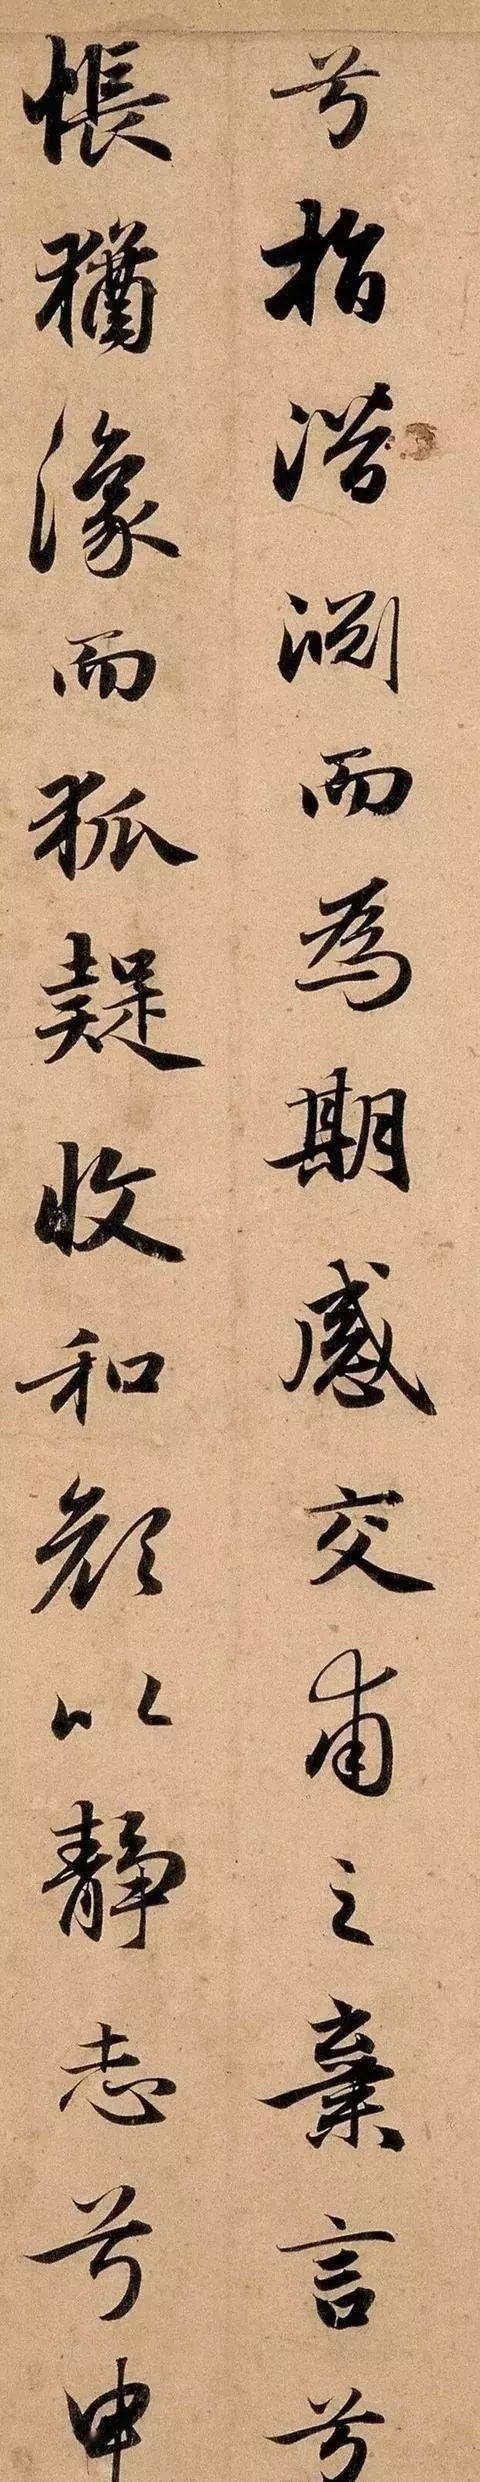 兮指潛淵而為期感交甫之棄言兮
悵猶豫而狐疑收和顏以靜志兮申